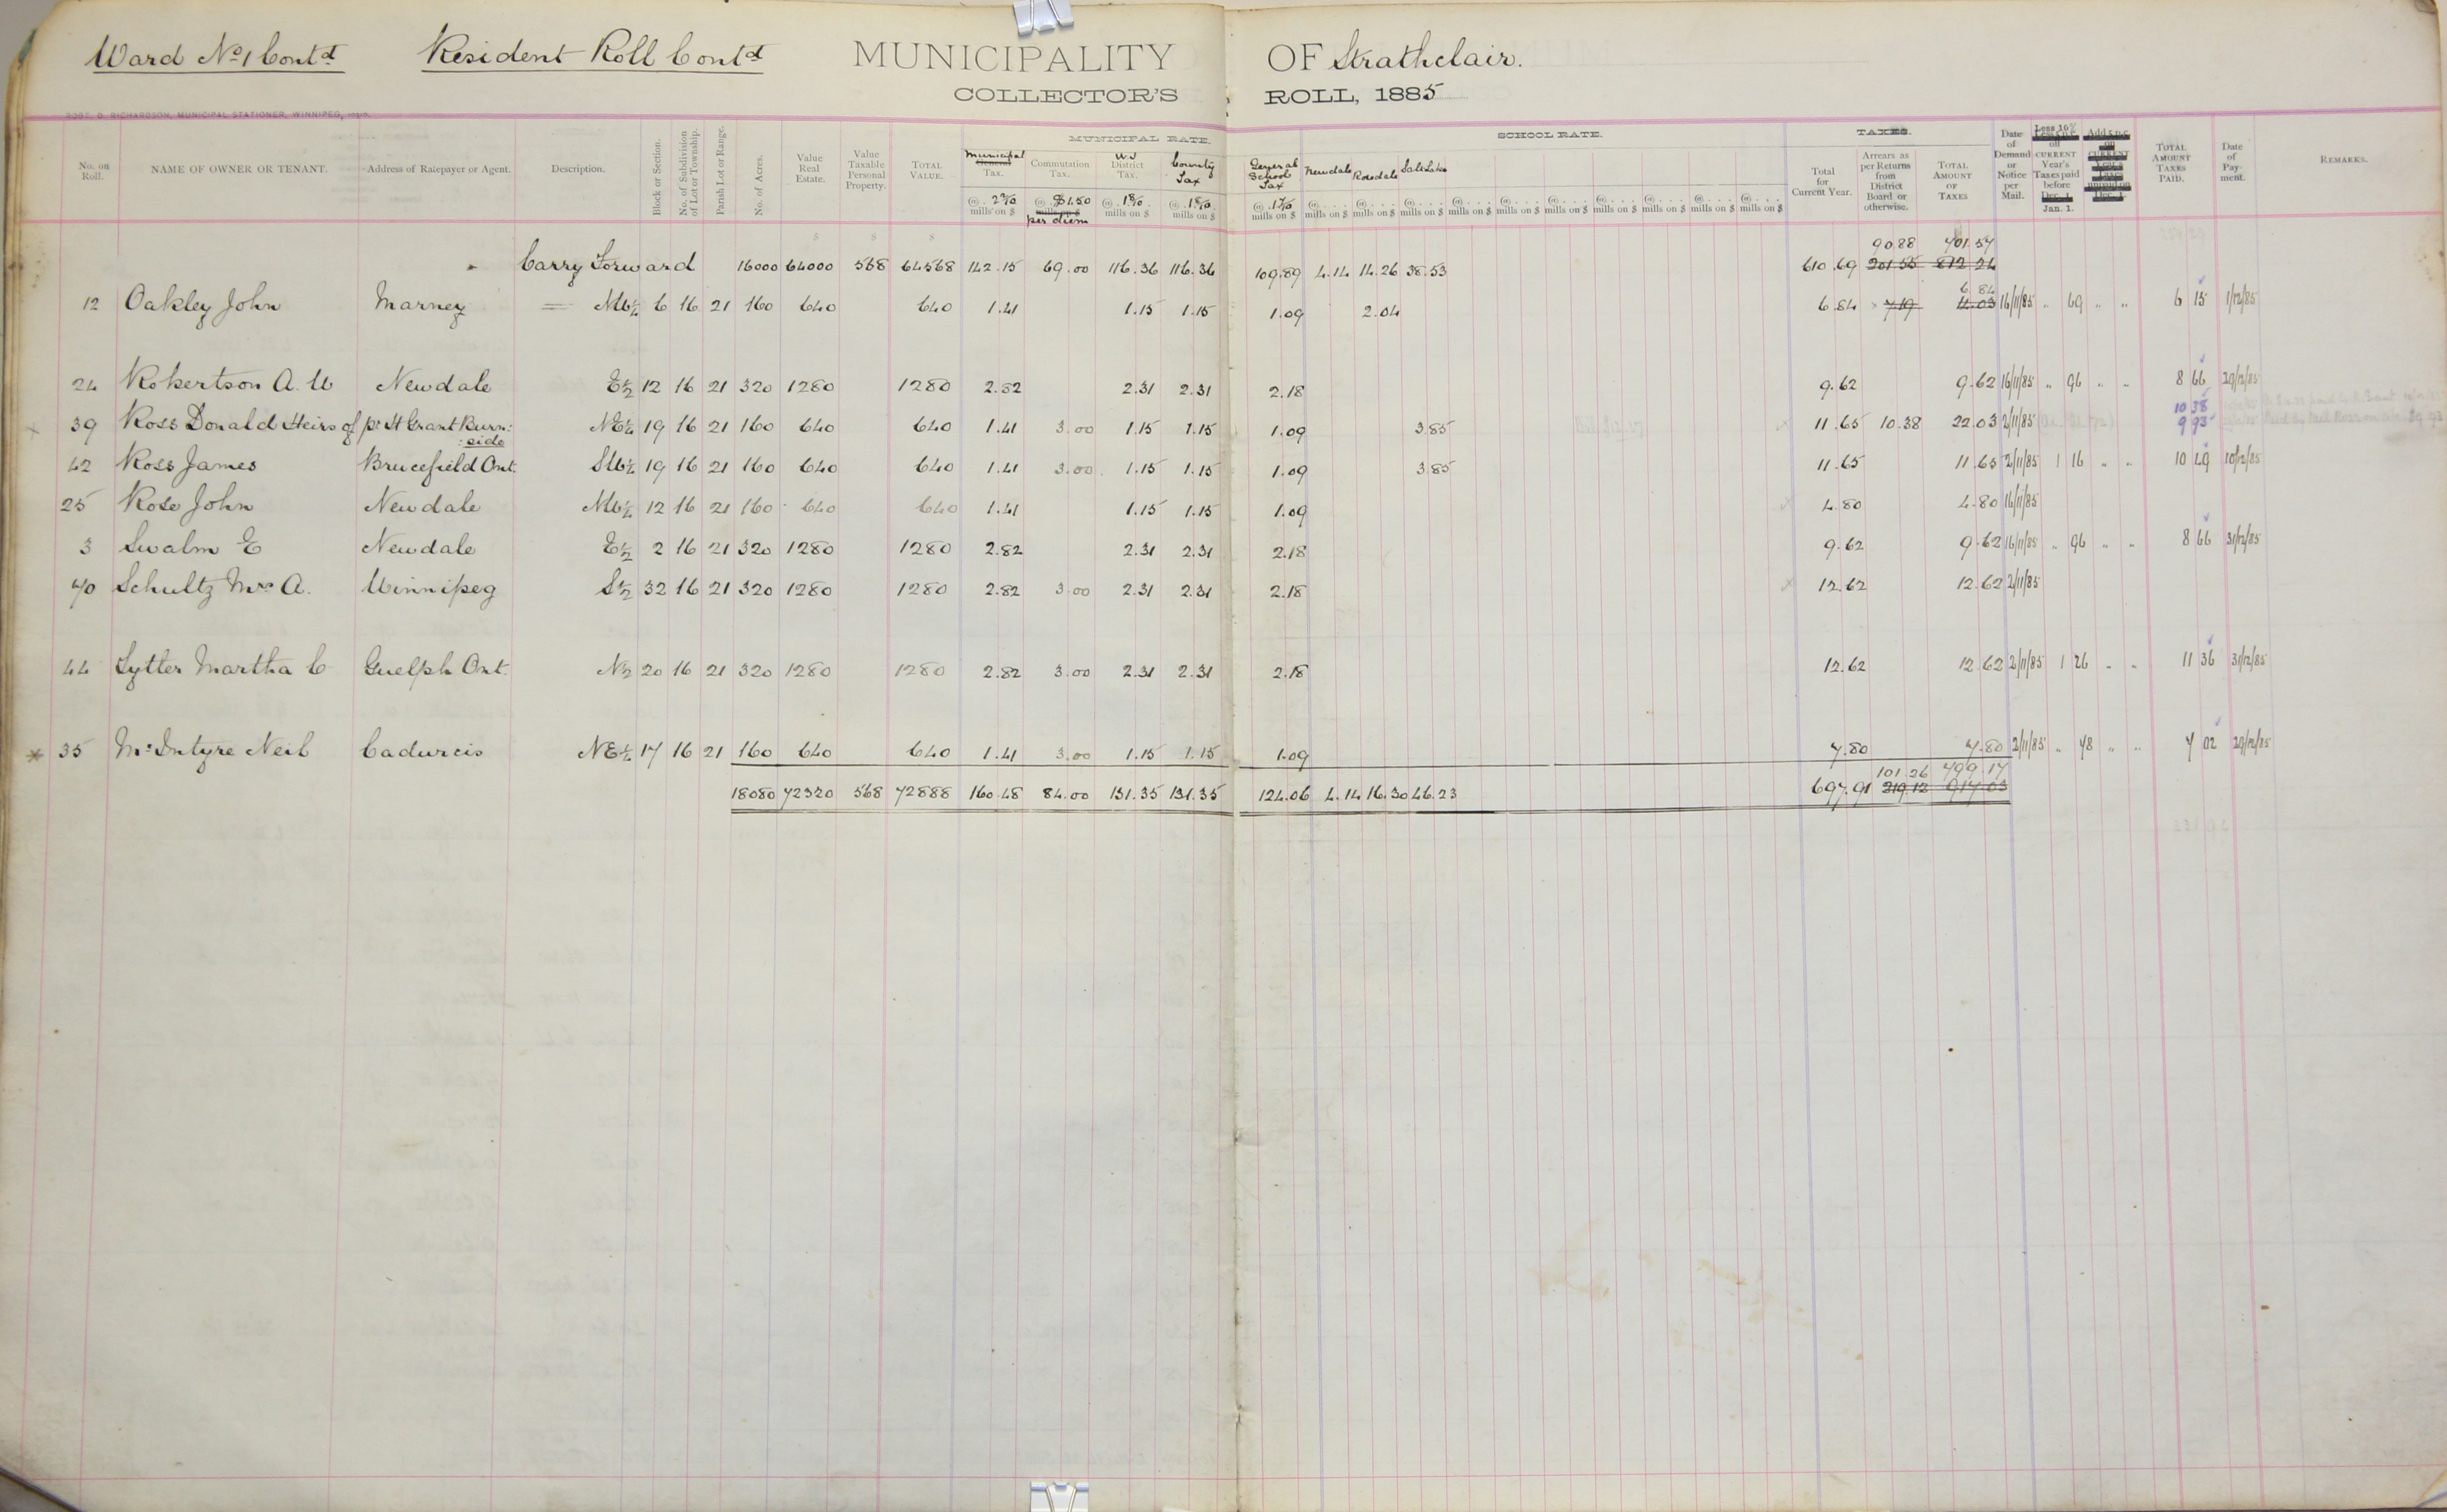 Ward No 1 Contd Resident Roll Contd MUNICIPALITY OF Strathclair.
COLLECTOR'S ROLL, 1885
ROBT. D. RICHARDSON, MUNICIPAL STATIONER, WINNIPEG,
No. on Roll. NAME OF OWNER OR TENANT. Address of Ratepayer or Agent. Description. Block or Section. No. of Subdivision of Lot or Township. Parish Lot or Range. No. of Acres. Value Real Estate. Value Taxable Personal Property. TOTAL VALUE. MUNICIPAL RATE. Municipal General Tax. @ 2 2/10 mills on $ Commutation Tax. @ $1.50 mills on $ per diem W.J. District Tax. @ 1 8/10 mills on $ County Tax @ 1 8/10 mills on $ General School Tax @ 1 7/10 mills on $ SCHOOL RATE. Newdale Rossdale Salt Lake @ mills on $ @ mills on $ @ mills on $ @ mills on $ @ mills on $ @ mills on $ @ mills on $ @ mills on $ @ mills on $ @ mills on $ TAXES. Total for Current Year. Arrears as per Returns from District Board or otherwise. TOTAL AMOUNT OF TAXES Date of Demand or Notice per Mail. Less 10% off CURRENT Year's Taxes paid before Dec. 1. Jan. 1. Add 5 p.c. on CURRENT Year's Taxes unpaid on Dec. 1. TOTAL AMOUNT TAXES PAID. Date of Payment. REMARKS.
90.88 701.57
Carry Forward 16000 64000 568 64568 142.15 69.00 116.36 116.36 109.89 4.14 14.26 38.53 610.69 201.55 812.24
6.84
12 Oakley John Marney NW¼ 6 16 21 160 640 640 1.41 1.15 1.15 1.09 2.04 6.84 7.19 14.03 16/11/85 " 69 " " 6 15 1/12/85
24 Robertson A. W Newdale E½ 12 16 21 320 1280 1280 2.82 2.31 2.31 2.18 9.62 9.62 16/11/85 " 96 " " 8 66 29/12/85
10 38
39 Ross Donald Heirs of pr H Grant Burn:side NE¼ 19 16 21 160 640 640 1.41 3.00 1.15 1.15 1.09 3.85 11.65 10.38 22.03 2/11/85 9 93
42 Ross James Brucefield Ont. SW¼ 19 16 21 160 640 640 1.41 3.00 1.15 1.15 1.09 3.85 11.65 11.65 2/11/85 1 16 " " 10 49 10/12/85
25 Rose John Newdale NW¼ 12 16 21 160 640 640 1.41 1.15 1.15 1.09 4.80 4.80 16/11/85
3 Swalm E Newdale E½ 2 16 21 320 1280 1280 2.82 2.31 2.31 2.18 9.62 9.62 16/11/85 " 96 " " 8 66 31/12/85
70 Schultz Mrs A. Winnipeg S½ 32 16 21 320 1280 1280 2.82 3.00 2.31 2.31 2.18 12.62 12.62 2/11/85
44 Sytler Martha C Guelph Ont. N½ 20 16 21 320 1280 1280 2.82 3.00 2.31 2.31 2.18 12.62 12.62 2/11/85 1 26 " " 11 36 31/12/85
* 35 McIntyre Neil Cadurcis NE¼ 17 16 21 160 640 640 1.41 3.00 1.15 1.15 1.09 7.80 7.80 2/11/85 " 78 " " 7 02 29/12/85
101.26 799.17
18080 72320 568 72888 160.48 84.00 131.35 131.35 124.06 4.14 16.30 46.23 697.91 219.12 917.03